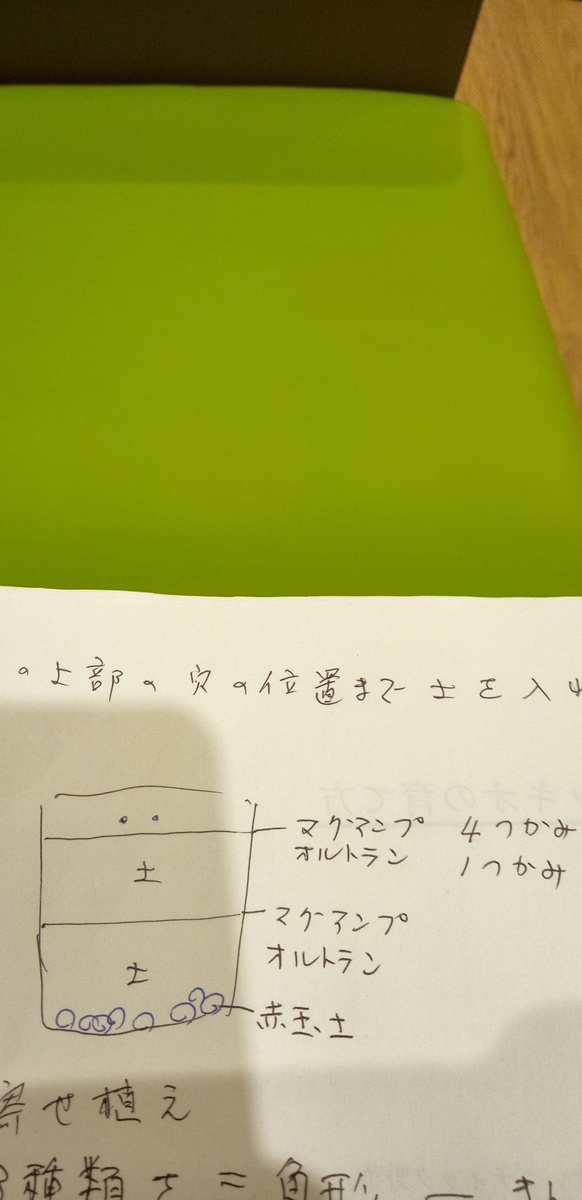 の上部の穴の位置まで土を入れ
マグアンプ 4つかみ
オルトラン 1つかみ
土
マグアンプ
オルトラン
土
赤玉土
寄せ植え
3種類を三角形